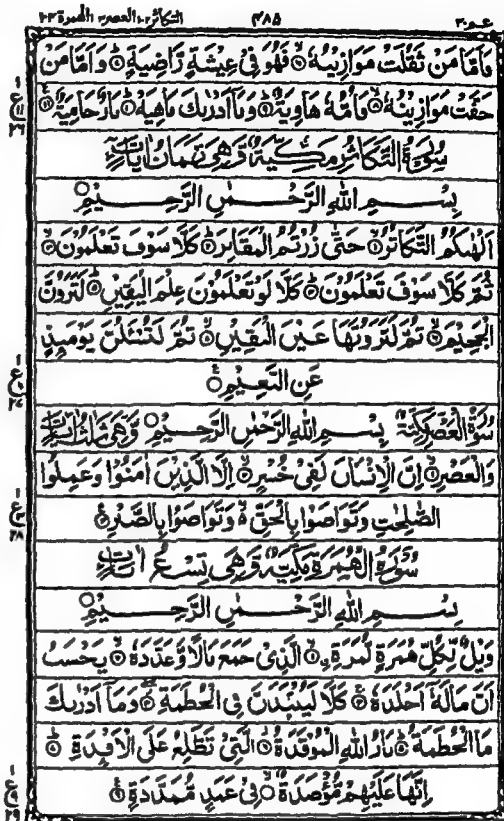 عم ٣٠ ٤٨٥ التكاثر ١٠٢ العصر ١٠٣ الهمزة ١٠٤
وَاَمَّا مَنْ ثَقُلَتْ مَوَازِيْنُهٗ ۙ فَهُوَ فِيْ عِيْشَةٍ رَّاضِيَةٍ ؕ وَاَمَّا مَنْ
خَفَّتْ مَوَازِيْنُهٗ ۙ فَاُمُّهٗ هَاوِيَةٌ ؕ وَمَاۤ اَدْرٰىكَ مَاهِيَهْ ؕ نَارٌ حَامِيَةٌ
سُوْرَةُ التَّكَاثُرِ مَكِّيَّةٌ وَّهِيَ ثَمَانُ اٰيَاتٍ
بِسْمِ اللهِ الرَّحْمٰنِ الرَّحِيْمِ
اَلْهٰىكُمُ التَّكَاثُرُ ۙ حَتّٰى زُرْتُمُ الْمَقَابِرَ ؕ كَلَّا سَوْفَ تَعْلَمُوْنَ ۙ
ثُمَّ كَلَّا سَوْفَ تَعْلَمُوْنَ ؕ كَلَّا لَوْ تَعْلَمُوْنَ عِلْمَ الْيَقِيْنِ ؕ لَتَرَوُنَّ
الْجَحِيْمَ ۙ ثُمَّ لَتَرَوُنَّهَا عَيْنَ الْيَقِيْنِ ۙ ثُمَّ لَتُسْئَلُنَّ يَوْمَىِٕذٍ
عَنِ النَّعِيْمِ
سُوْرَةُ الْعَصْرِ مَكِّيَّةٌ بِسْمِ اللهِ الرَّحْمٰنِ الرَّحِيْمِ وَّهِيَ ثَلٰثُ اٰيَاتٍ
وَالْعَصْرِ ۙ اِنَّ الْاِنْسَانَ لَفِيْ خُسْرٍ ۙ اِلَّا الَّذِيْنَ اٰمَنُوْا وَعَمِلُوا
الصّٰلِحٰتِ وَتَوَاصَوْا بِالْحَقِّ ۙ وَتَوَاصَوْا بِالصَّبْرِ
سُوْرَةُ الْهُمَزَةِ مَكِّيَّةٌ وَّهِيَ تِسْعُ اٰيَاتٍ
بِسْمِ اللهِ الرَّحْمٰنِ الرَّحِيْمِ
وَيْلٌ لِّكُلِّ هُمَزَةٍ لُّمَزَةِ ۙ ۨالَّذِيْ جَمَعَ مَالًا وَّعَدَّدَهٗ ۙ يَحْسَبُ
اَنَّ مَالَهٗۤ اَخْلَدَهٗ ۚ كَلَّا لَيُنْۢبَذَنَّ فِي الْحُطَمَةِ ۖ وَمَاۤ اَدْرٰىكَ
مَا الْحُطَمَةُ ؕ نَارُ اللهِ الْمُوْقَدَةُ ۙ الَّتِيْ تَطَّلِعُ عَلَى الْاَفْـِٕدَةِ ؕ
اِنَّهَا عَلَيْهِمْ مُّؤْصَدَةٌ ۙ فِيْ عَمَدٍ مُّمَدَّدَةٍ